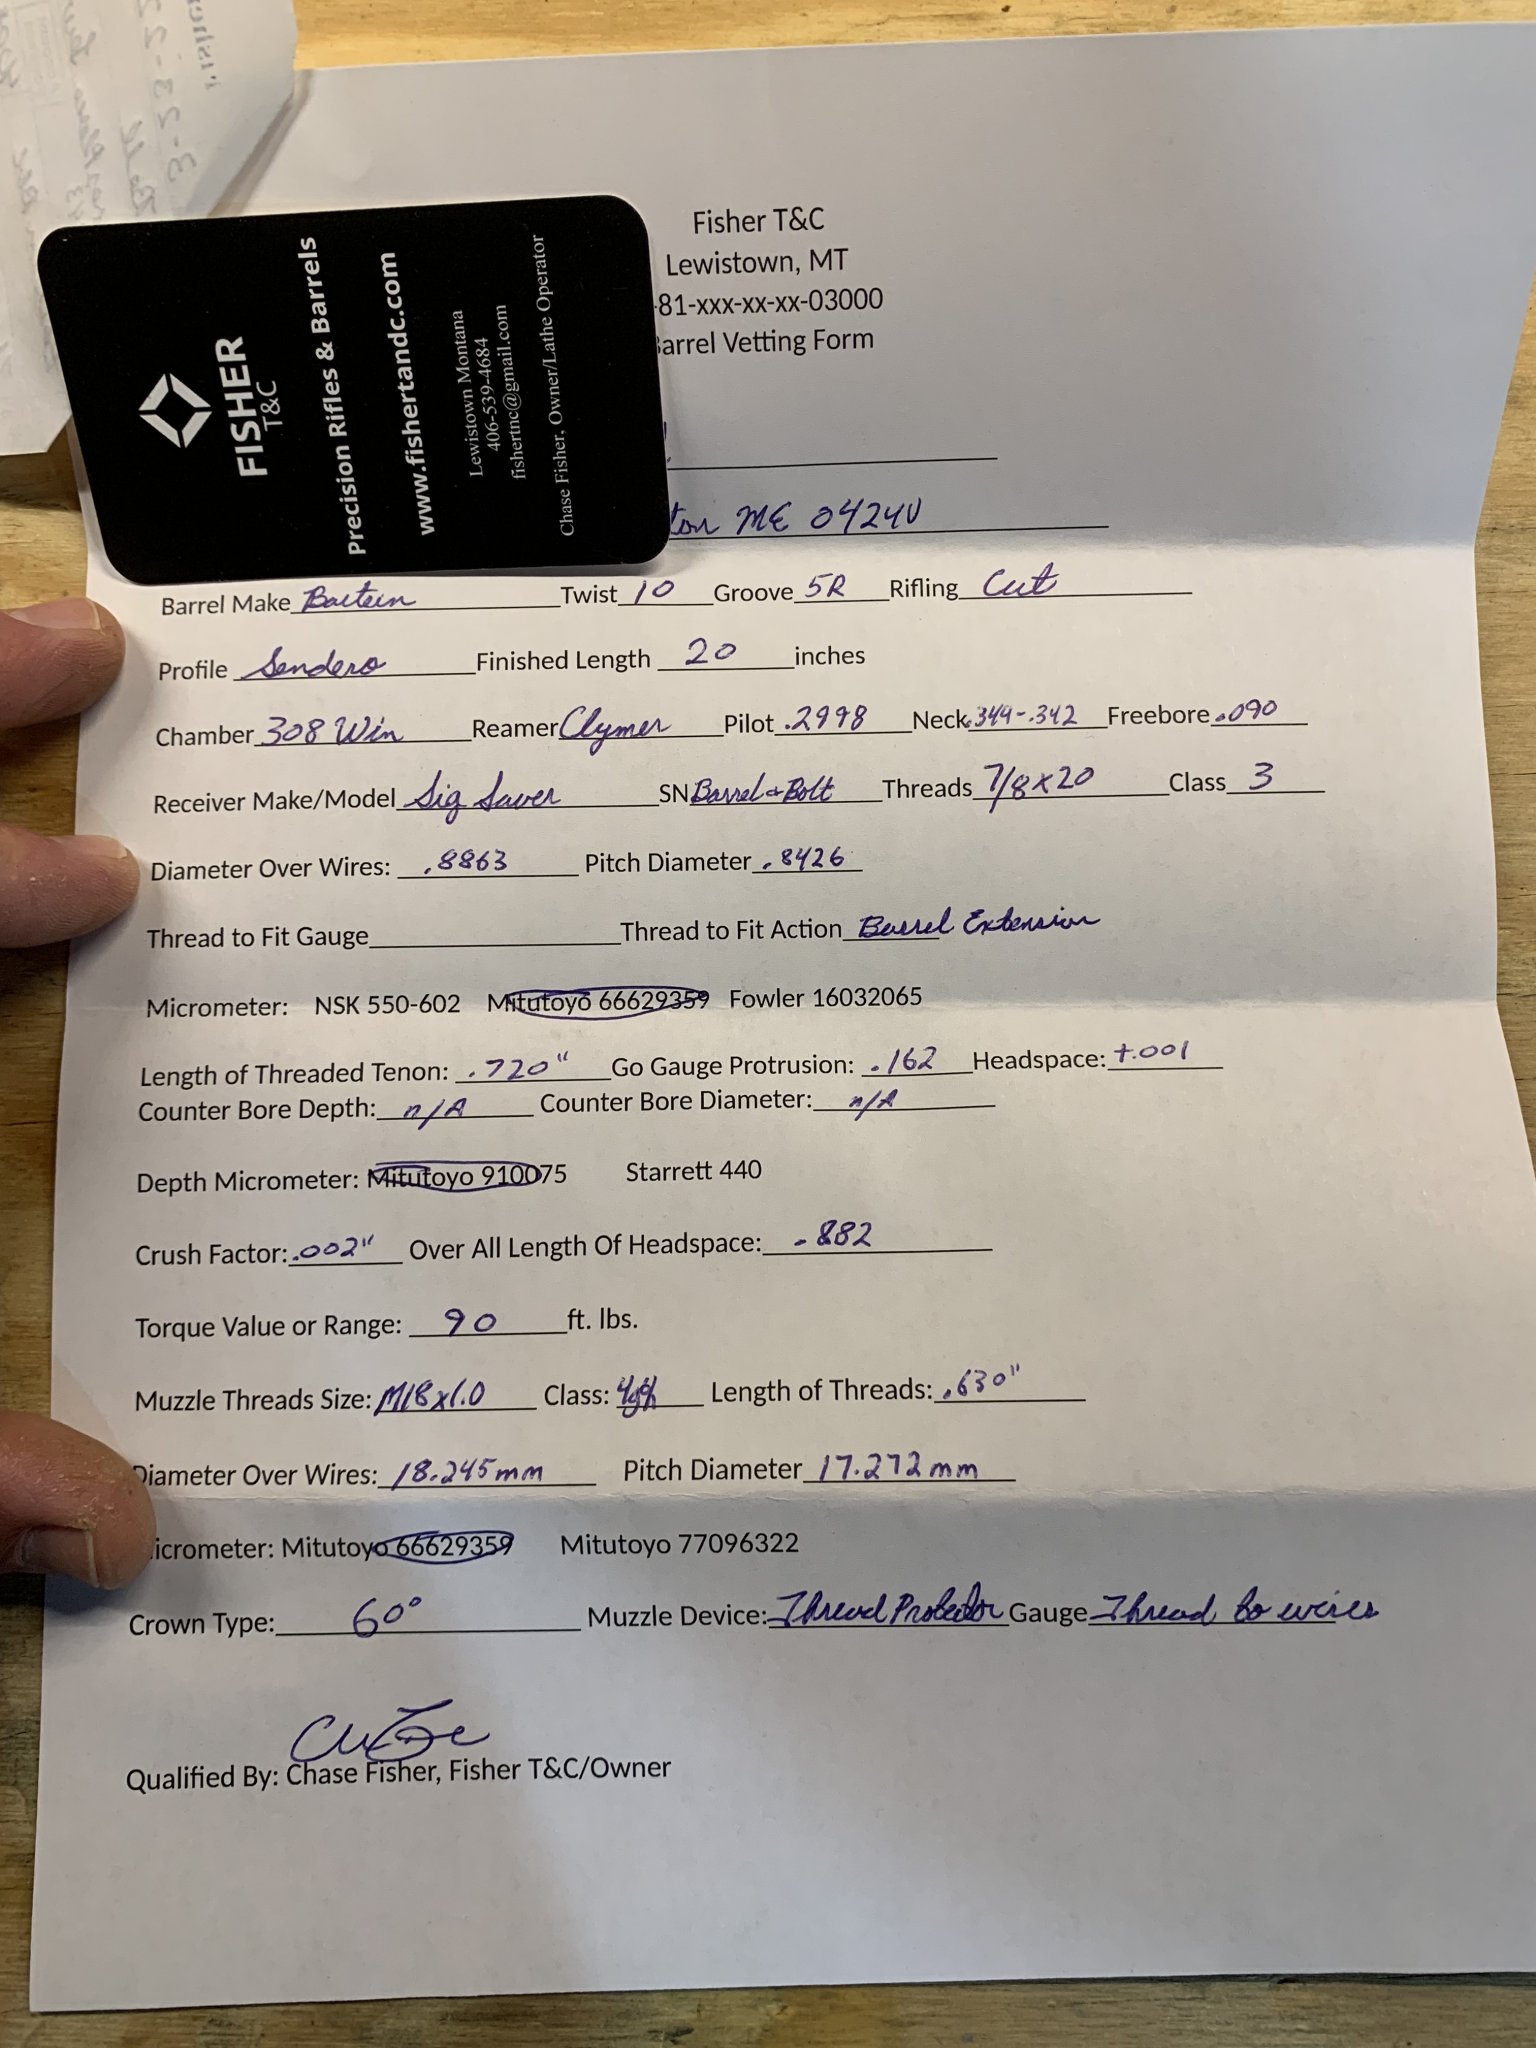 Fisher T&C
Lewistown, MT
-81-xxx-xx-xx-03000
Barrel Vetting Form
FISHER
T&C
Precision Rifles & Barrels
www.fishertandc.com
Lewistown Montana
406-539-4684
fishertnc@gmail.com
Chase Fisher, Owner/Lathe Operator
ton ME 04240
Barrel Make Bartein Twist 10 Groove 5R Rifling Cut
Profile Sendero Finished Length 20 inches
Chamber 308 Win Reamer Clymer Pilot .2998 Neck .344-.342 Freebore .090
Receiver Make/Model Sig Sauer SN Barrel + Bolt Threads 7/8x20 Class 3
Diameter Over Wires: .8863 Pitch Diameter .8426
Thread to Fit Gauge Thread to Fit Action Barrel Extension
Micrometer: NSK 550-602 Mitutoyo 66629359 Fowler 16032065
Length of Threaded Tenon: .720" Go Gauge Protrusion: .162 Headspace: +.001
Counter Bore Depth: n/A Counter Bore Diameter: n/A
Depth Micrometer: Mitutoyo 910075 Starrett 440
Crush Factor: .002" Over All Length Of Headspace: .882
Torque Value or Range: 90 ft. lbs.
Muzzle Threads Size: M18x1.0 Class: Length of Threads: .630"
Diameter Over Wires: 18.245mm Pitch Diameter 17.272mm
icrometer: Mitutoyo 66629359 Mitutoyo 77096322
Crown Type: 60° Muzzle Device: Thread Protector Gauge Thread to wires
Qualified By: Chase Fisher, Fisher T&C/Owner